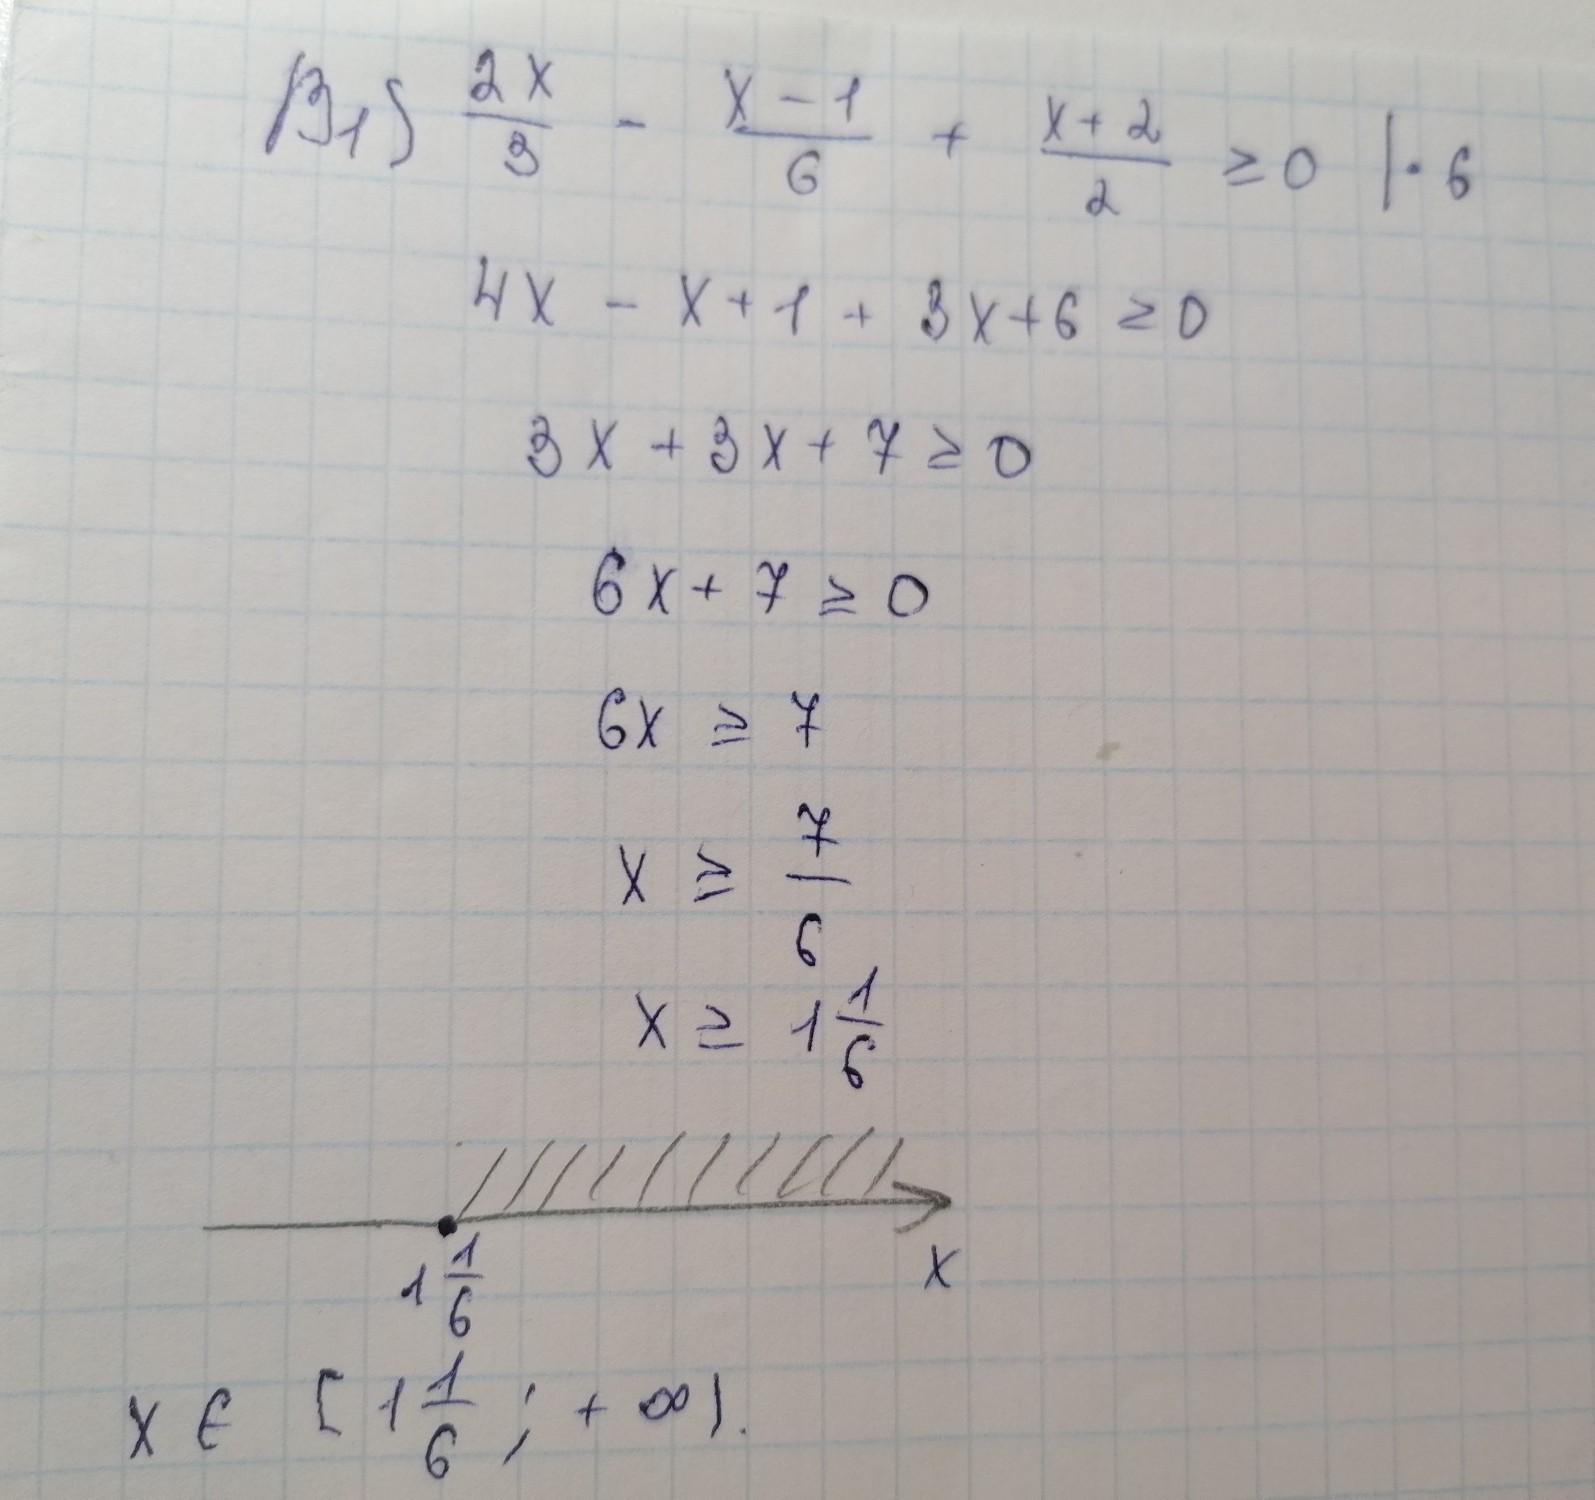 В1) 2x/3 - x-1/6 + x+2/2 ≥ 0 |· 6
4x - x+1 + 3x+6 ≥ 0
3x + 3x + 7 ≥ 0
6x + 7 ≥ 0
6x ≥ 7
x ≥ 7/6
x ≥ 1 1/6
1 1/6 x
x ∈ [1 1/6 ; + ∞).